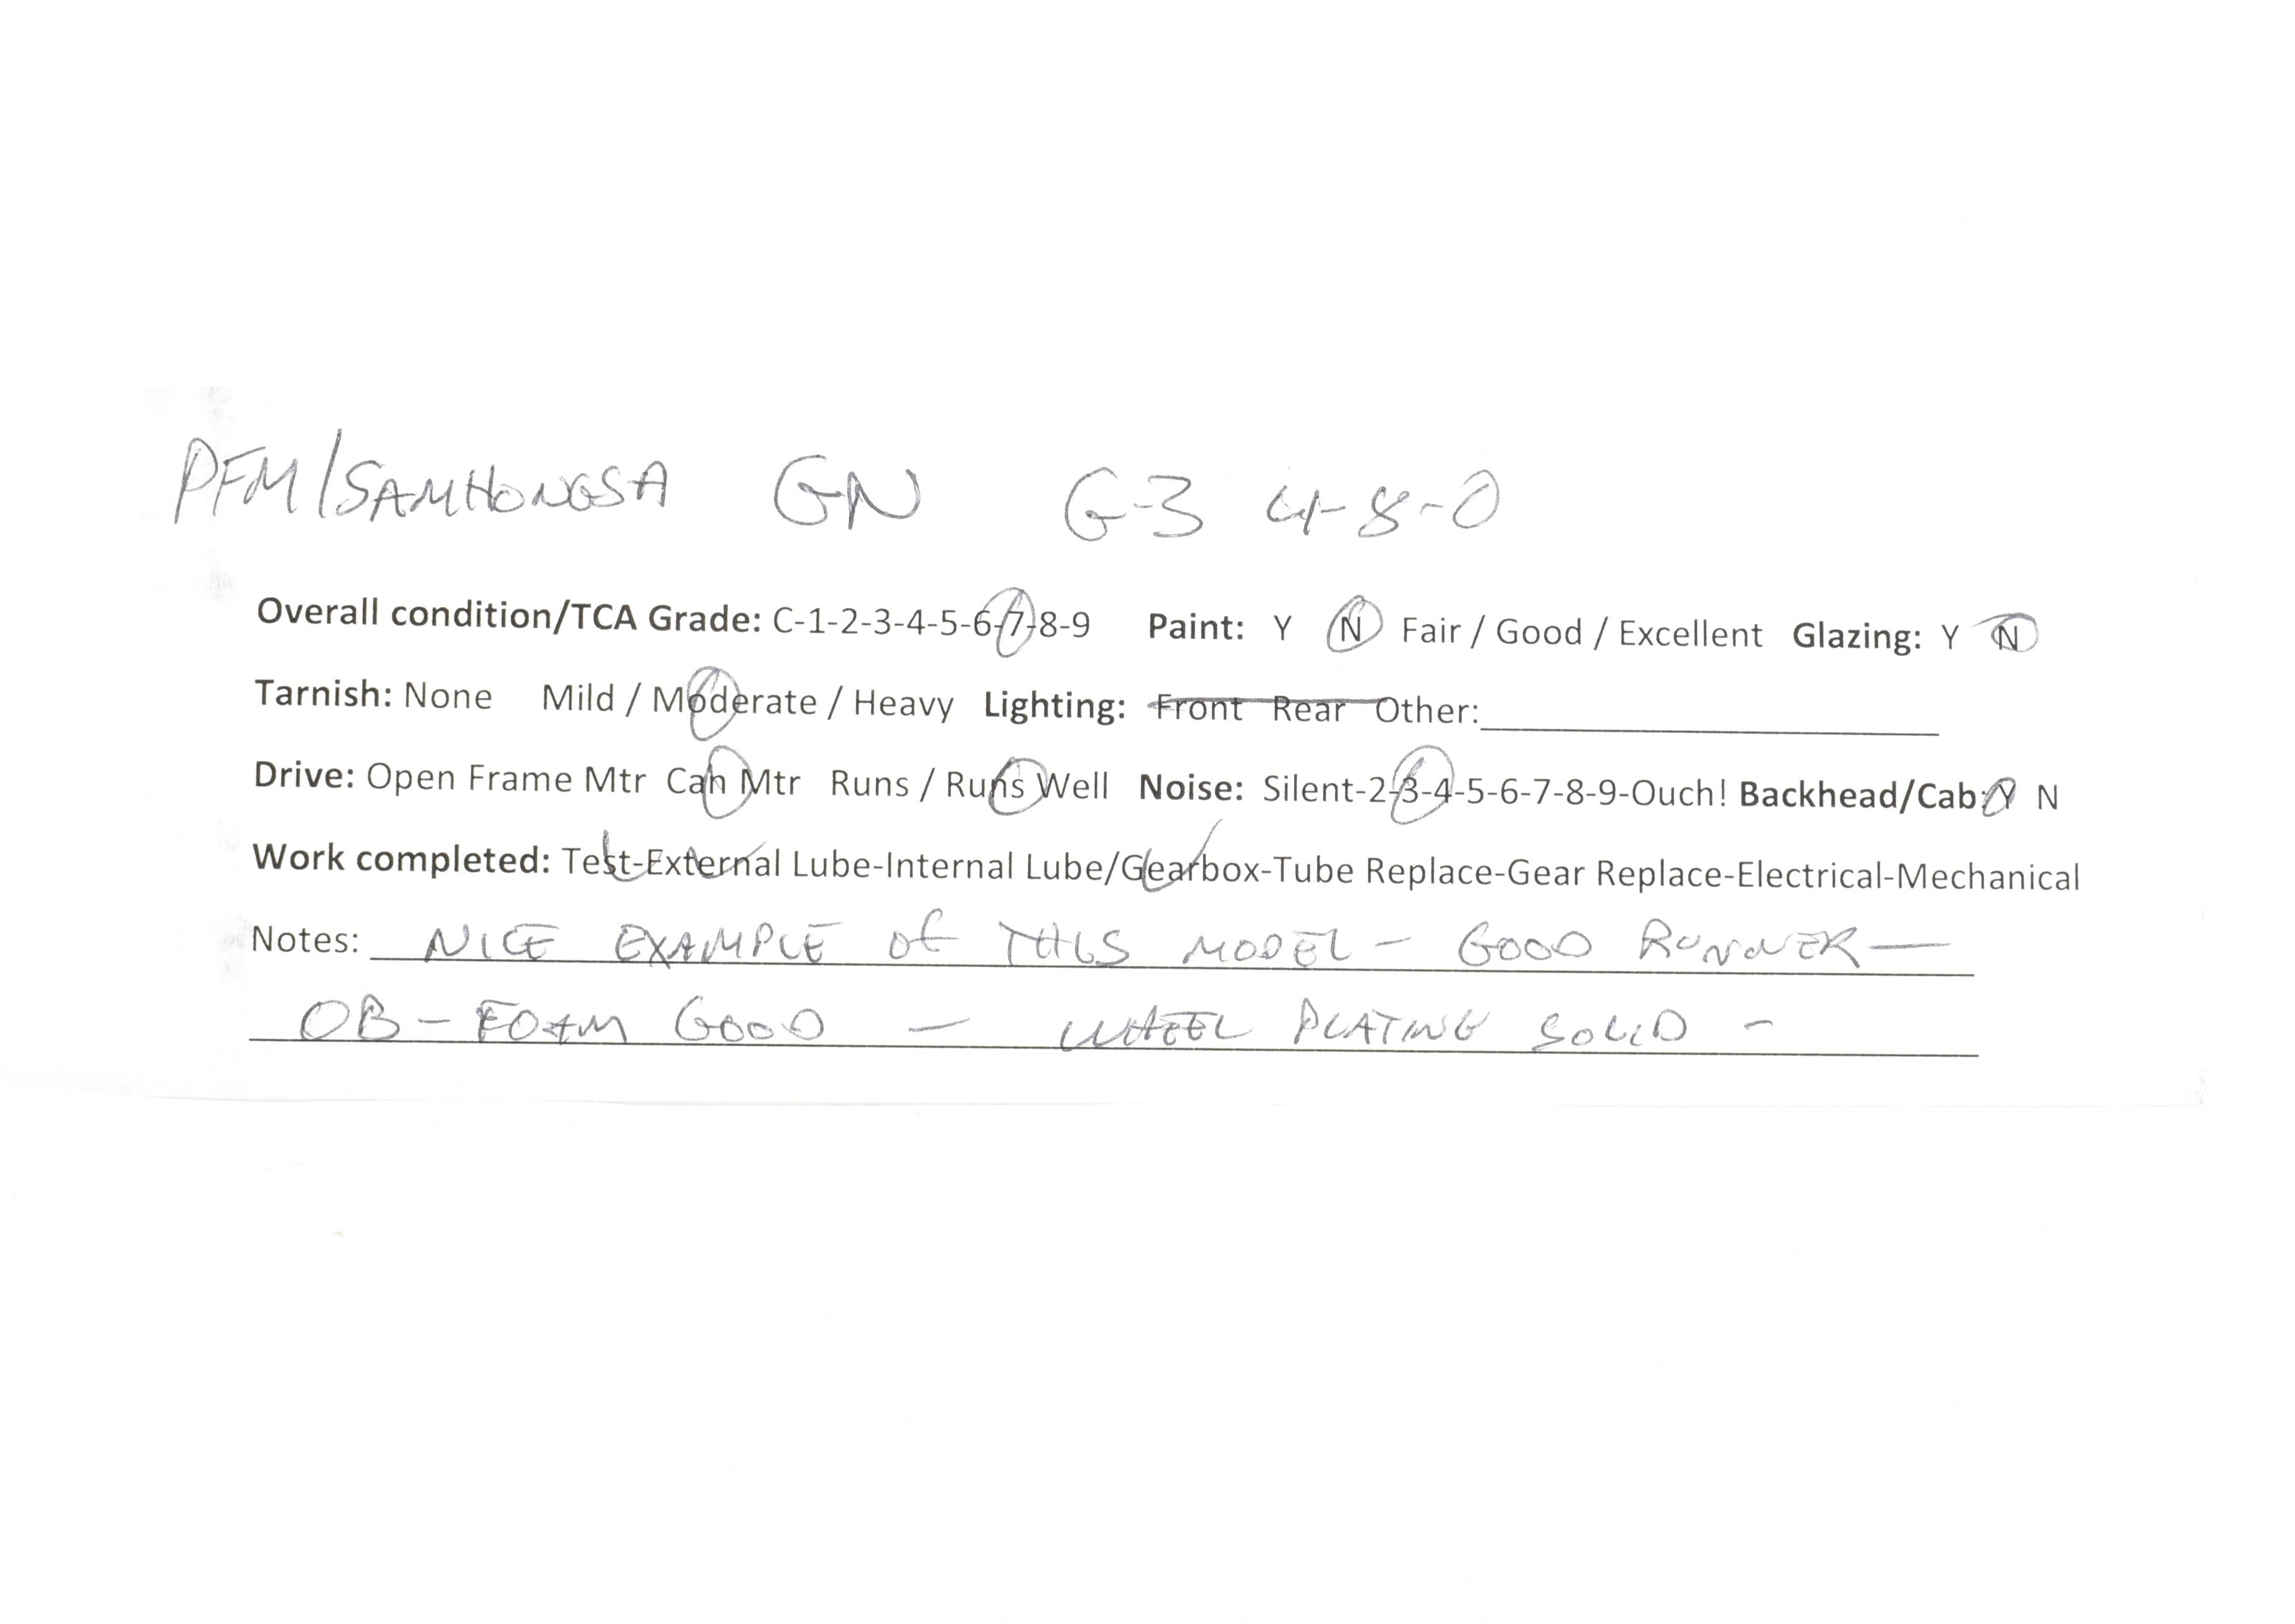 PFM/SAMHONGSA GN G-3 4-8-0
Overall condition/TCA Grade: C-1-2-3-4-5-6-7-8-9 Paint: Y N Fair / Good / Excellent Glazing: Y N
Tarnish: None Mild / Moderate / Heavy Lighting: Front Rear Other:
Drive: Open Frame Mtr Can Mtr Runs / Runs Well Noise: Silent-2-3-4-5-6-7-8-9-Ouch! Backhead/Cab: Y N
Work completed: Test-External Lube-Internal Lube/Gearbox-Tube Replace-Gear Replace-Electrical-Mechanical
Notes: NICE EXAMPLE OF THIS MODEL - GOOD RUNNER -
OB - FOAM GOOD - WHEEL PLATING SOLID -